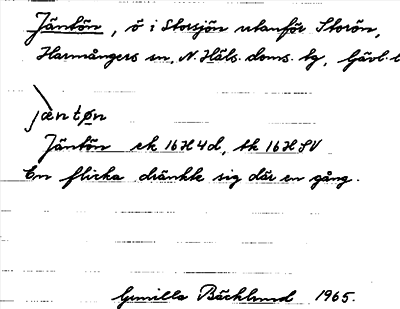 Jäntön, ö i Storsjön utanför Storön,
Harmångers sn, N. Häls. doms. tg, Gävl.
jæntøn
Jäntön ek 16H4d, tk 16H SV
En flicka dränkte sig där en gång.
Gunilla Bäcklund 1965.